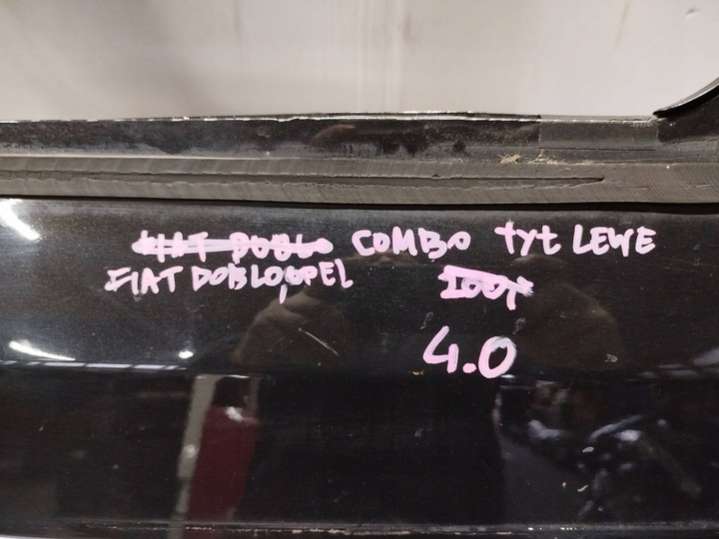 FIAT DOBLO COMBO TYŁ LEWE
FIAT DOBLO, OPEL
4.0